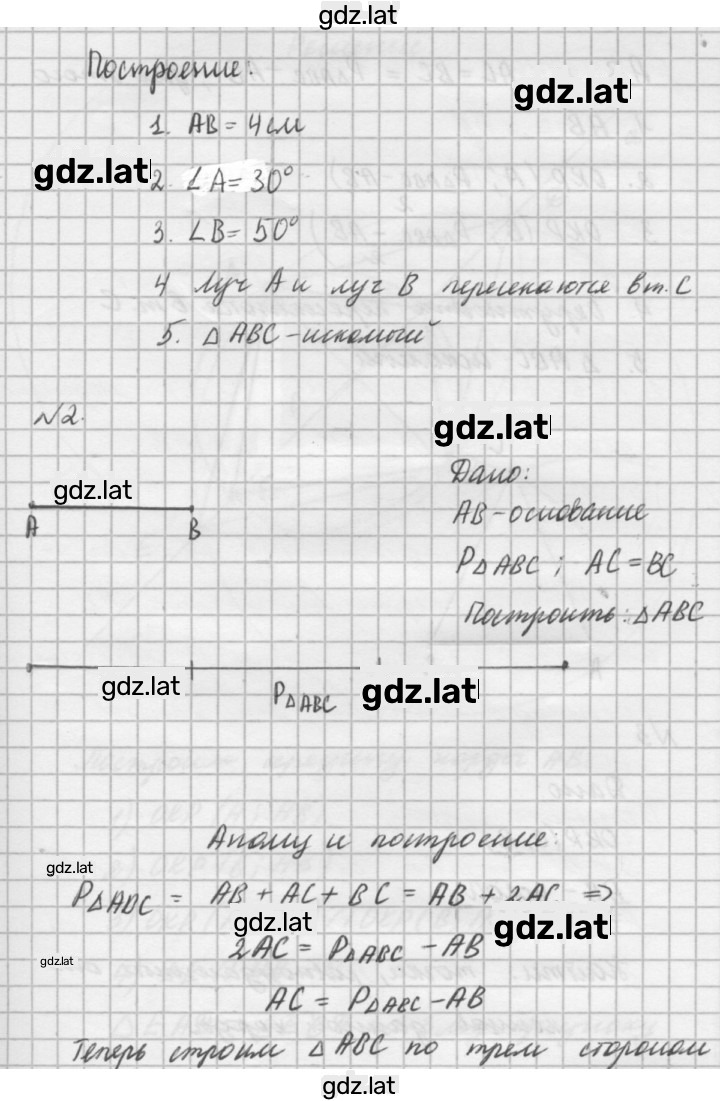 gdz.lat
Построение:
gdz.lat
1. AB = 4см
gdz.lat
2. ∠A = 30°
3. ∠B = 50°
4 Луч A и луч B пересекаются в т. C
5. △ABC - искомый
№2.
gdz.lat
gdz.lat
Дано:
A B
AB - основание
P△ABC ; AC = BC
Построить: △ABC
gdz.lat
P△ABC
gdz.lat
Анализ и построение:
gdz.lat
P△ABC = AB + AC + BC = AB + 2AC ⇒
gdz.lat
gdz.lat
2AC = P△ABC - AB
gdz.lat
AC = P△ABC - AB
Теперь строим △ABC по трем сторонам
gdz.lat